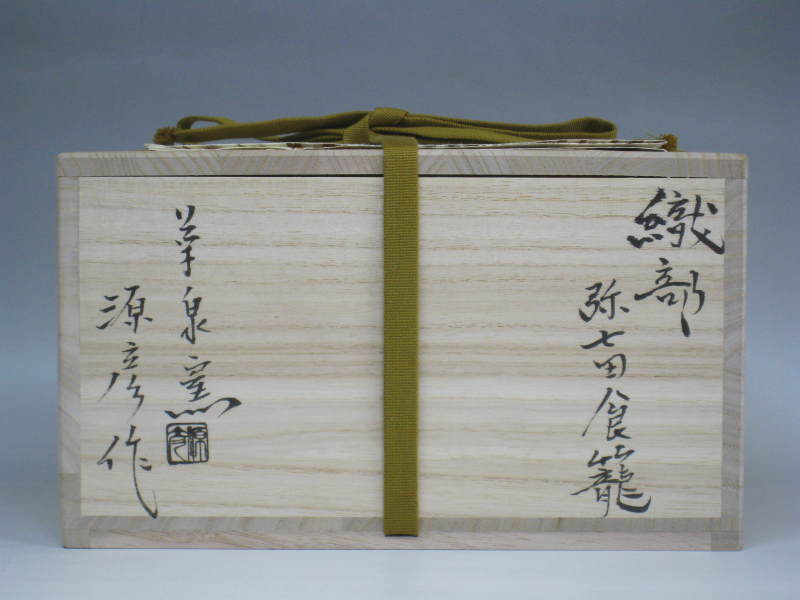 織部
弥七田食籠
華泉窯
源彦作